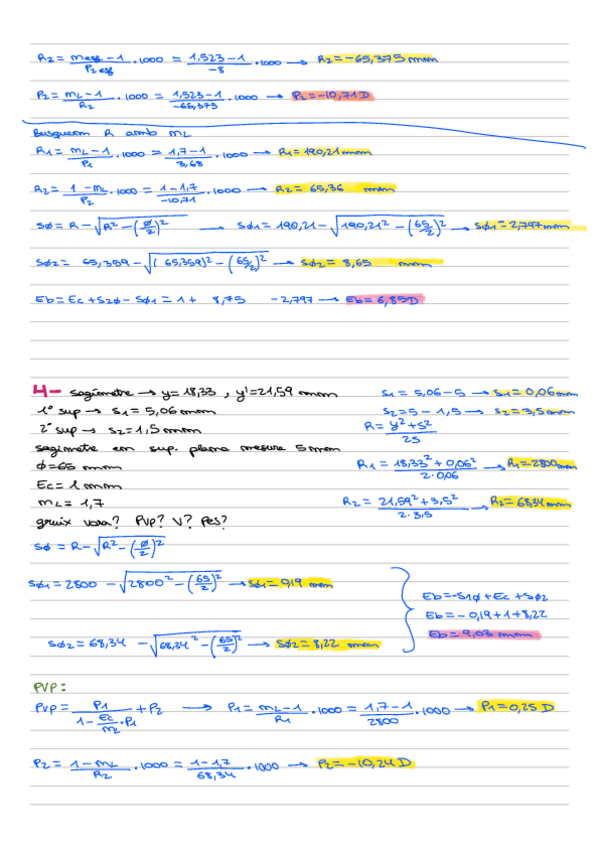 R2 = (mess - 1)/P2 ess · 1000 = (1,523 - 1)/-8 · 1000 → R2 = -65,375 mm
P2 = (mL - 1)/R2 · 1000 = (1,523 - 1)/-65,375 · 1000 → P2 = -10,71 D
Busquem R amb mL
R1 = (mL - 1)/P1 · 1000 = (1,7 - 1)/3,68 · 1000 → R1 = 190,21 mm
R2 = (1 - mL)/P2 · 1000 = (1 - 1,7)/-10,71 · 1000 → R2 = 65,36 mm
SØ = R - √(R² - (Ø/2)²) → SØ1 = 190,21 - √(190,21² - (65/2)²) → SØ1 = 2,797 mm
SØ2 = 65,359 - √((65,359)² - (65/2)²) → SØ2 = 8,65 mm
Eb = Ec + S2Ø - SØ1 = 1 + 8,75 - 2,797 → Eb = 6,85 D
4- sagímetre → y = 18,33 , y' = 21,59 mm
1º sup → s1 = 5,06 mm
2º sup → s2 = 1,5 mm
sagimete em sup. plana mesura 5 mm
Ø = 65 mm
Ec = 1 mm
mL = 1,7
gruix vora? PVP? V? Pes?
s1 = 5,06 - 5 → s1 = 0,06 mm
s2 = 5 - 1,5 → s2 = 3,5 mm
R = (y² + s²)/2s
R1 = (18,33² + 0,06²)/(2 · 0,06) → R1 = 2800 mm
R2 = (21,59² + 3,5²)/(2 · 3,5) → R2 = 68,34 mm
SØ = R - √(R² - (Ø/2)²)
SØ1 = 2800 - √(2800² - (65/2)²) → SØ1 = 0,19 mm
SØ2 = 68,34 - √(68,34² - (65/2)²) → SØ2 = 8,22 mm
Eb = -S1Ø + Ec + SØ2
Eb = -0,19 + 1 + 8,22
Eb = 9,03 mm
PVP:
PVP = P1/(1 - Ec/mL · P1) + P2 → P1 = (mL - 1)/R1 · 1000 = (1,7 - 1)/2800 · 1000 → P1 = 0,25 D
P2 = (1 - mL)/R2 · 1000 = (1 - 1,7)/68,34 · 1000 → P2 = -10,24 D